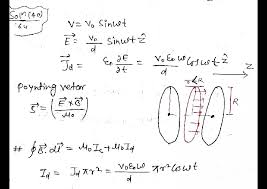 V = V₀ Sinωt
E⃗ = V₀/d Sinωt ẑ
J⃗d = ε₀ ∂E/∂t = V₀ε₀ω/d cosωt ẑ
Poynting vector
S⃗ = (E⃗×B⃗/μ₀)
r<R
R
Z
# ∮B⃗.dl⃗ = μ₀Ic + μ₀Id
Id = Jd πr² = V₀ε₀ω/d πr² cosωt